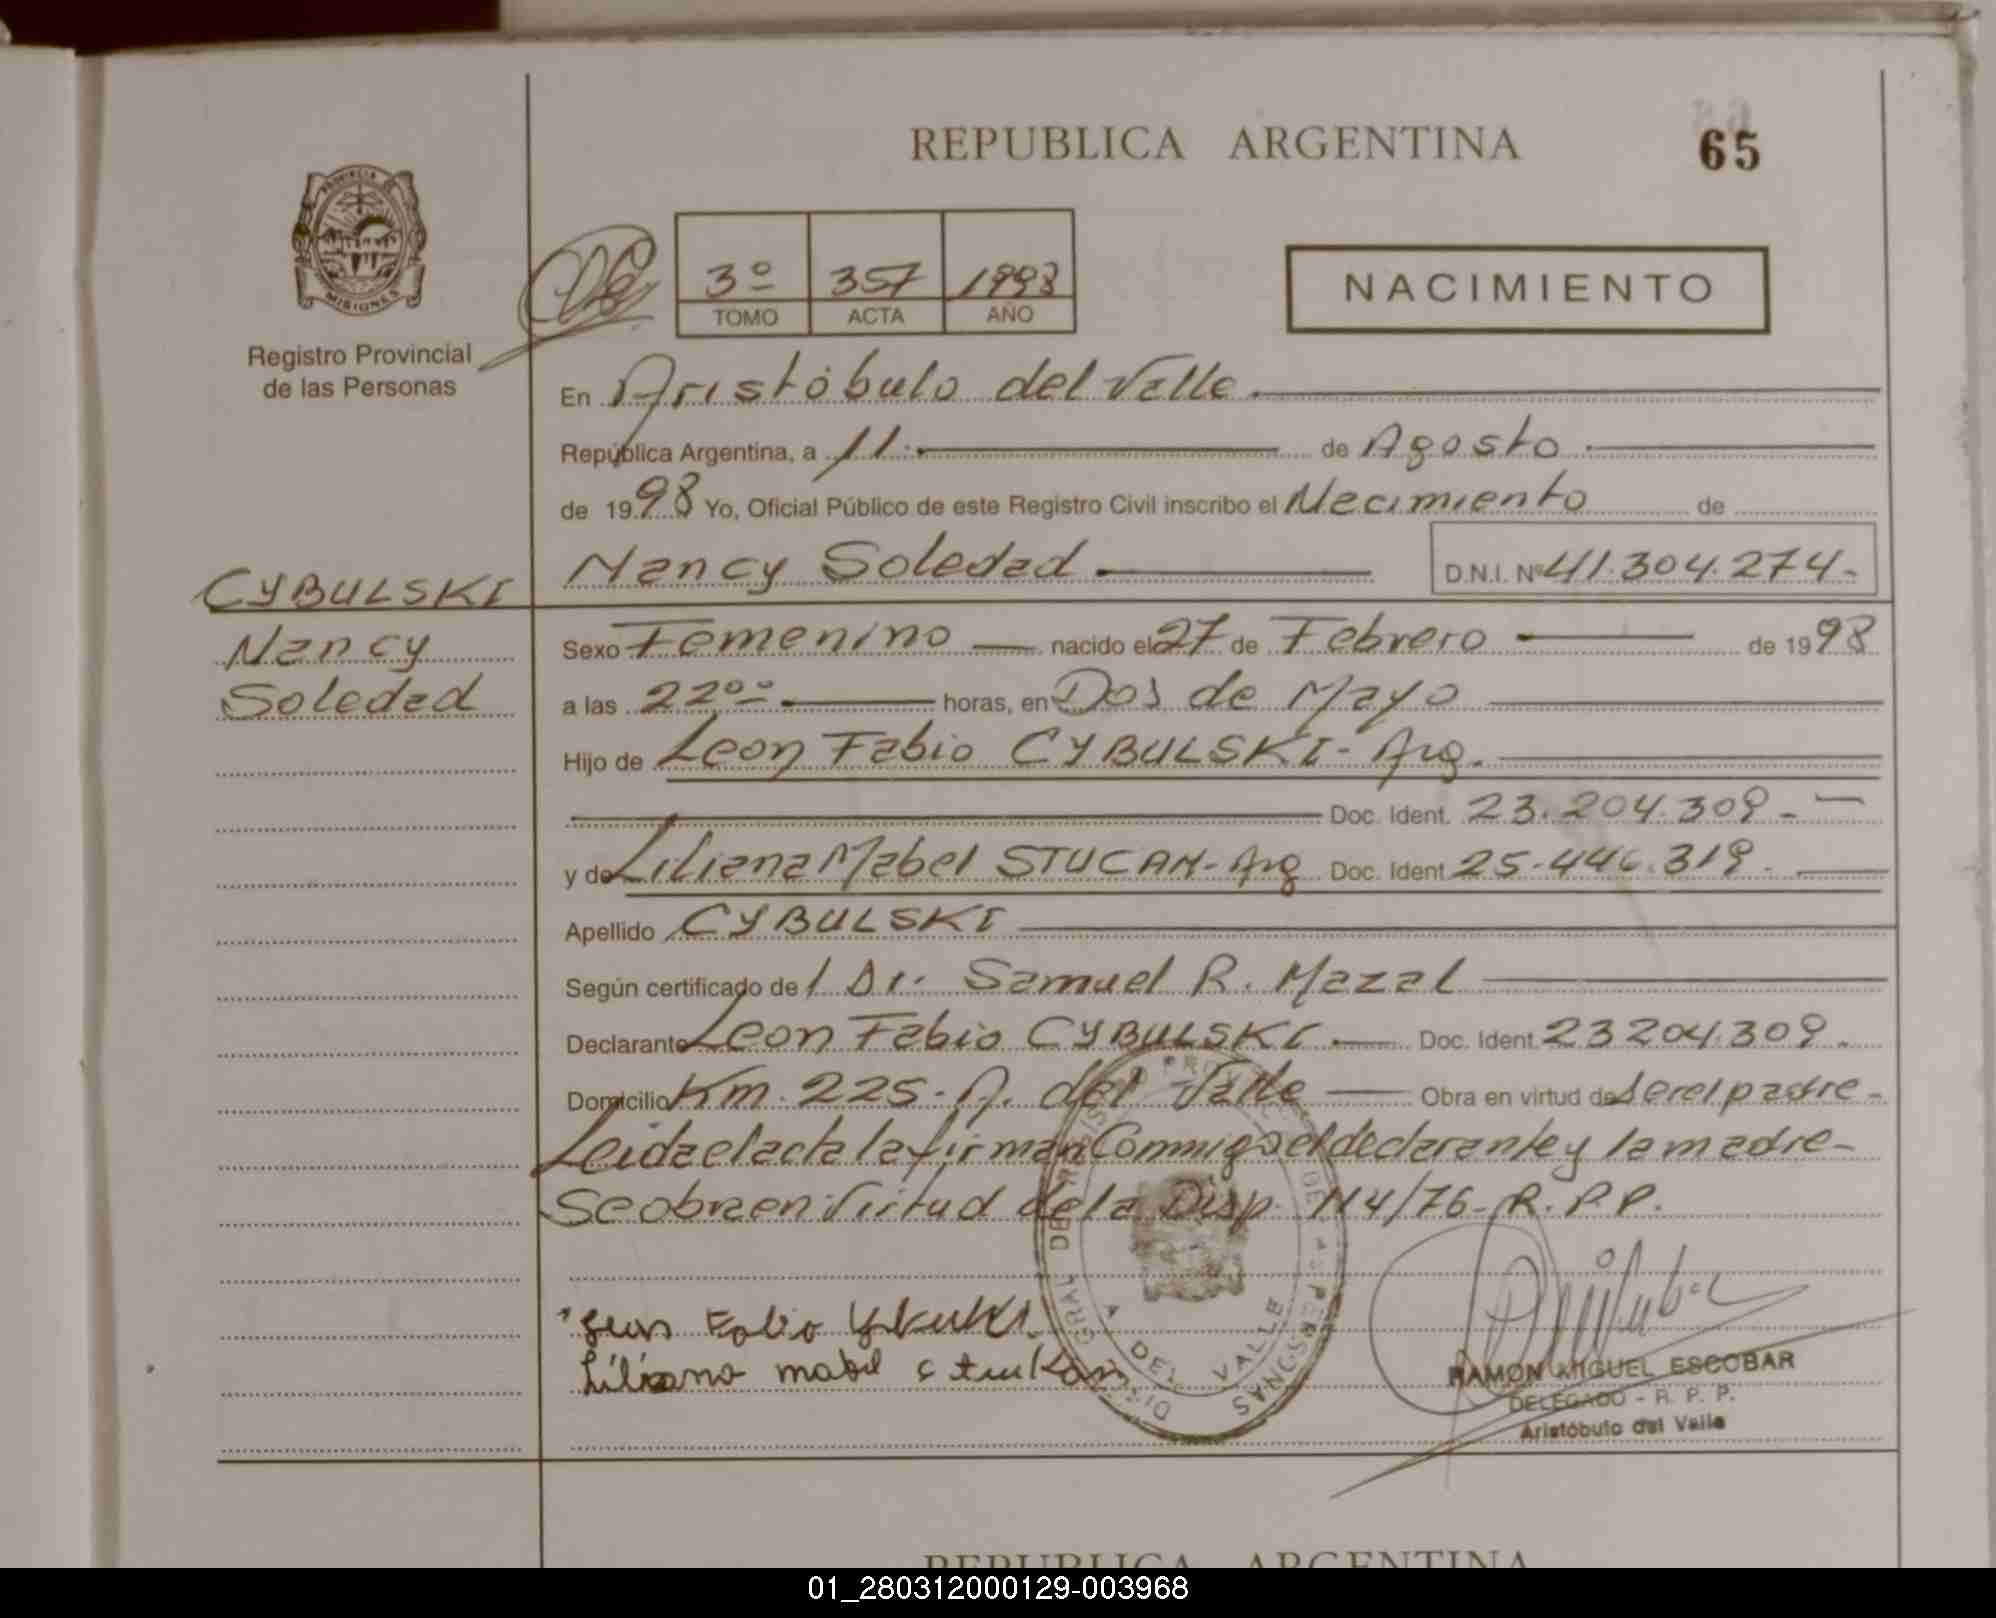 REPUBLICA ARGENTINA
65
PROVINCIA DE
MISIONES
Registro Provincial
de las Personas
3º 357 1998
TOMO ACTA AÑO
NACIMIENTO
En Aristóbulo del Valle
República Argentina, a 11 de Agosto
de 1998 Yo, Oficial Público de este Registro Civil inscribo el Nacimiento de
Nancy Soledad D.N.I. Nº 41.304.274-
CYBULSKI
Nancy
Soledad
Sexo Femenino nacido el 27 de Febrero de 1998
a las 22⁰⁰ horas, en Dos de Mayo
Hijo de Leon Fabio CYBULSKI- Arg.
Doc. Ident. 23.204.309-
y de Liliana Mabel STUCAN-Arg Doc. Ident 25.446.319.
Apellido CYBULSKI
Según certificado de l Dr. Samuel R. Mazal
Declarante Leon Fabio CYBULSKI Doc. Ident. 23204.309.
Domicilio Km. 225- A. del Valle Obra en virtud de ser el padre-
Leida el acta la firman Conmigo el declarante y la madre-
Se obra en Virtud de la Disp. 114/76- R.P.P.
Fabio
Liliana mabel
A DEL VALLE
RAMON MIGUEL ESCOBAR
DELEGADO - R. P. P.
Aristóbulo del Valle
REPUBLICA ARGENTINA
01_280312000129-003968